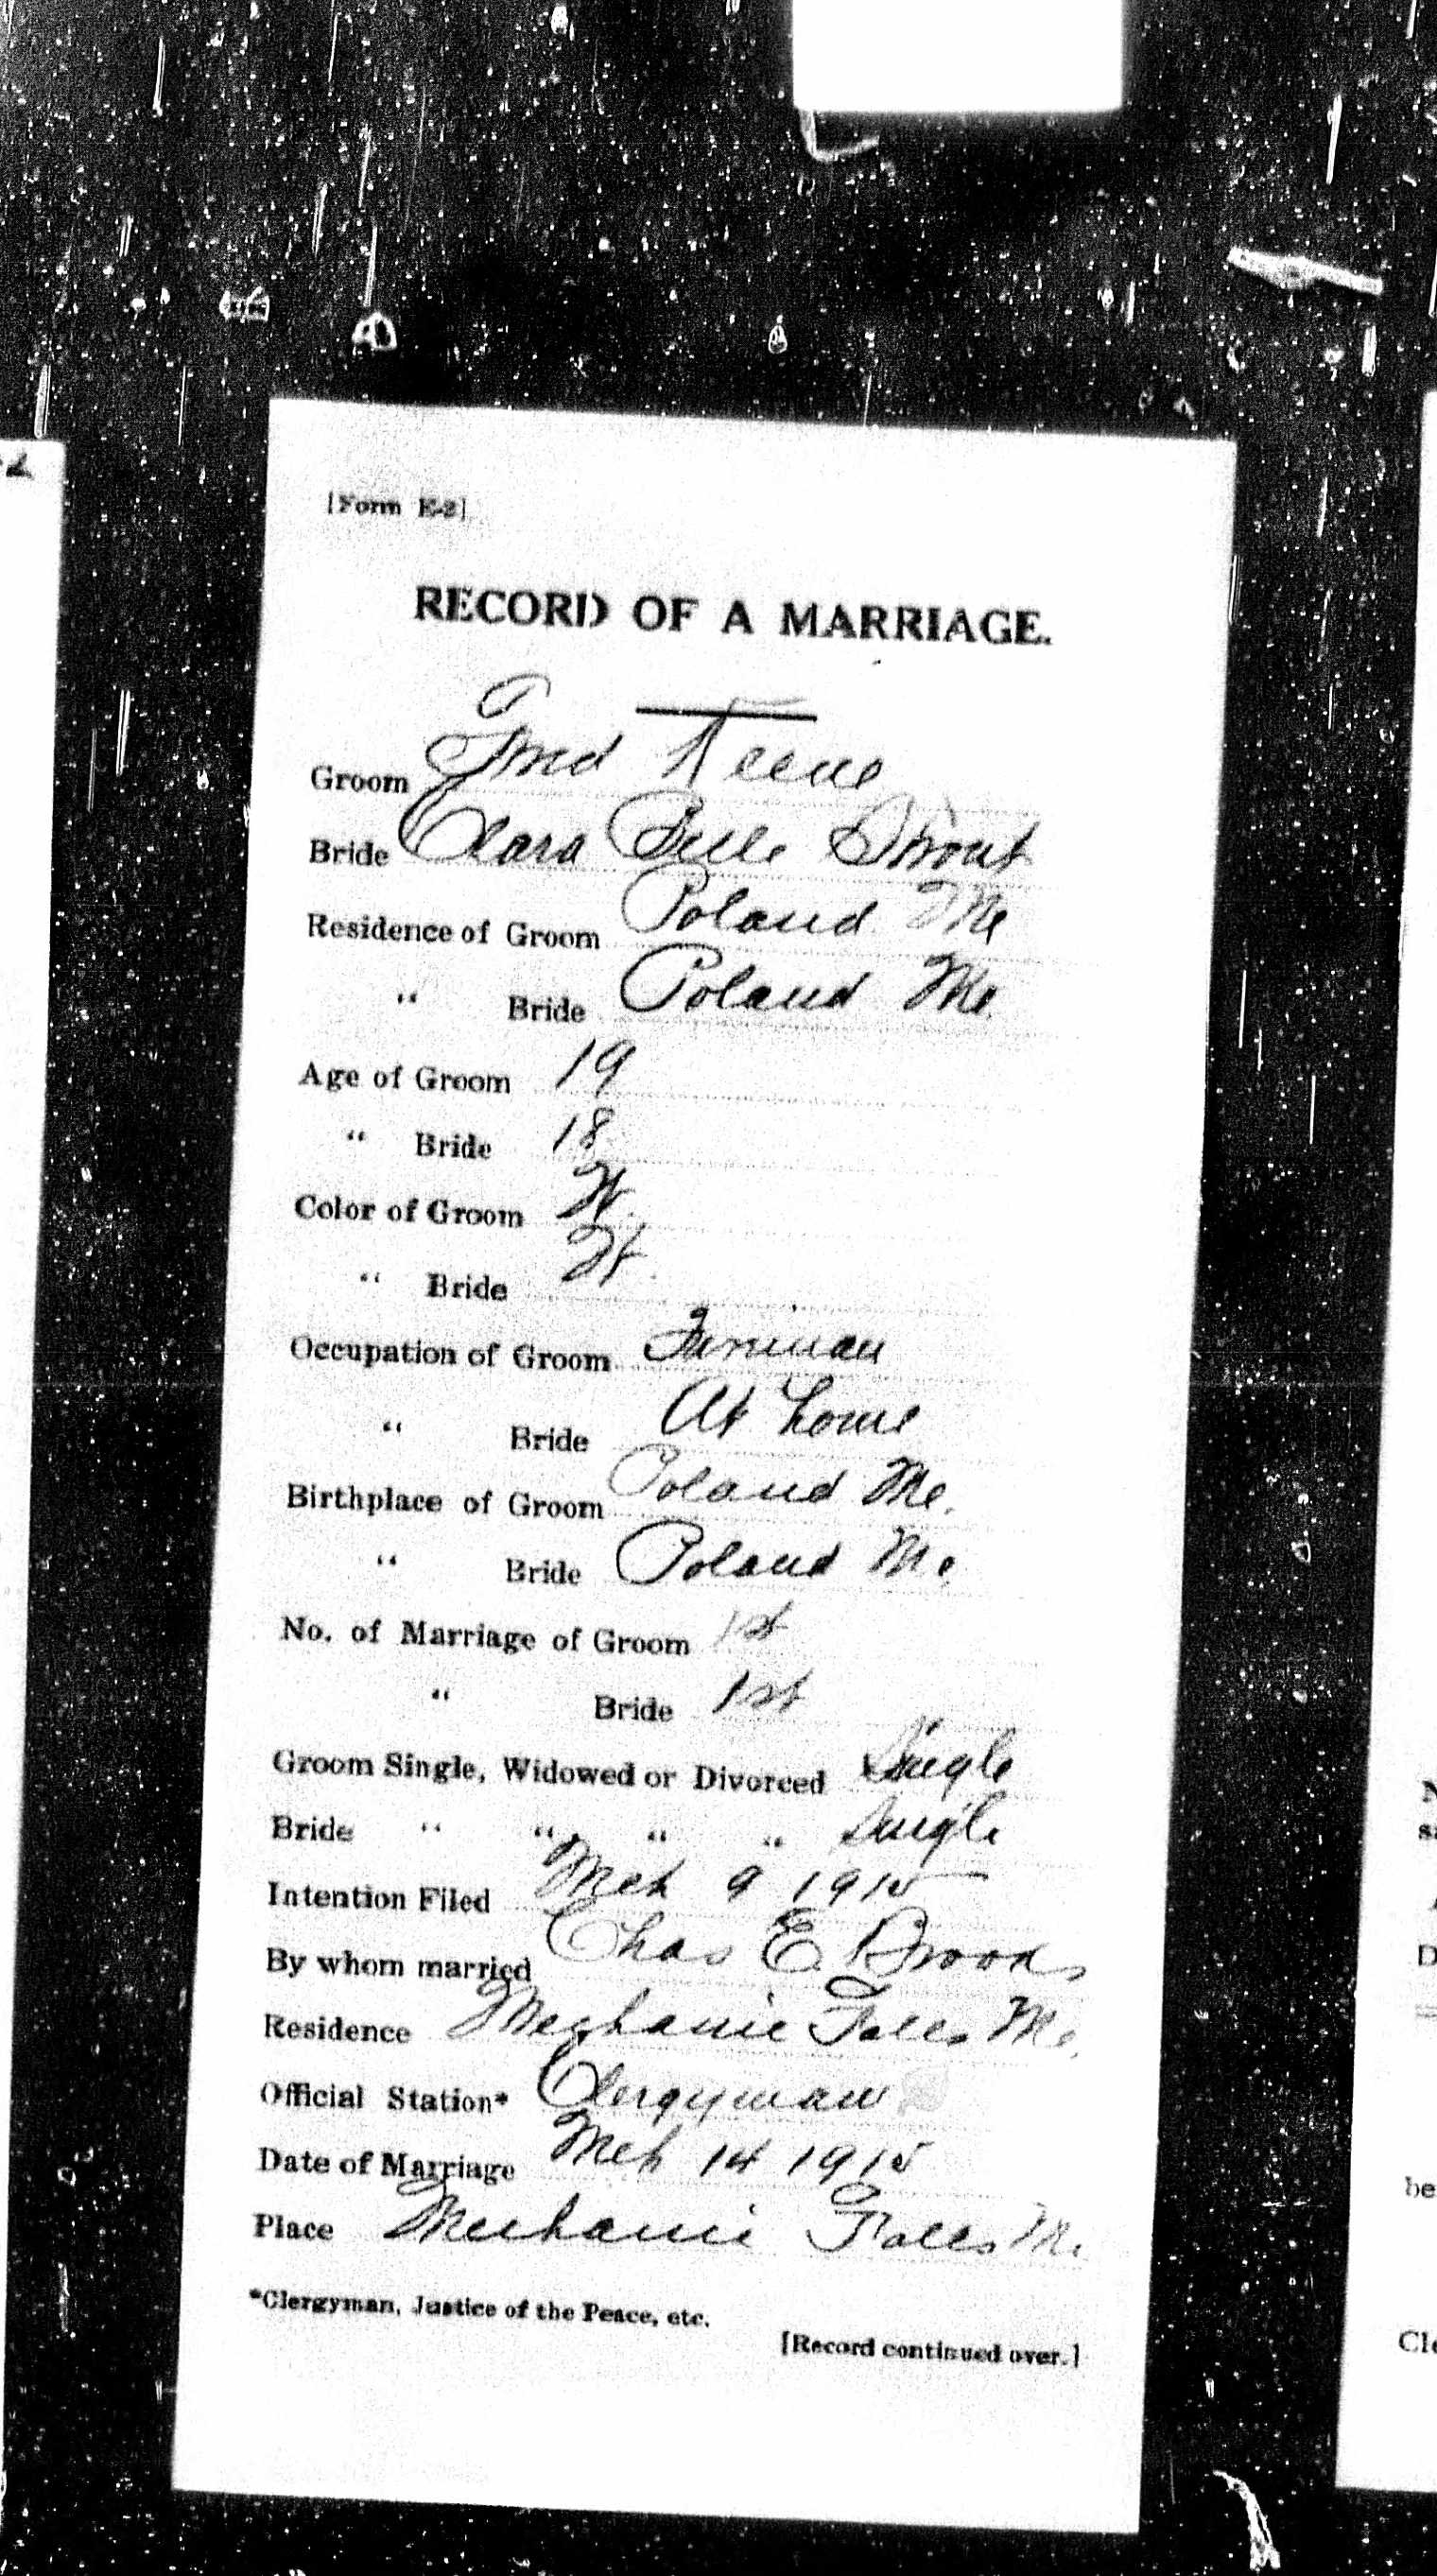 [Form E-2]
RECORD OF A MARRIAGE.
Groom Fred Keene
Bride Clara Belle Strout
Residence of Groom Poland Me
" Bride Poland Me.
Age of Groom 19
" Bride 18
Color of Groom W.
" Bride W.
Occupation of Groom
" Bride At home
Birthplace of Groom Poland Me.
" Bride Poland Me.
No. of Marriage of Groom 1st
" Bride 1st
Groom Single, Widowed or Divorced Single
Bride " " " " Single
Intention Filed Mch 9 1915
By whom married Chas E. Brooks
Residence Mechanic Falls Me.
Official Station* Clergyman
Date of Marriage Mch 14 1915
Place Mechanic Falls Me.
*Clergyman, Justice of the Peace, etc.
[Record continued over.]